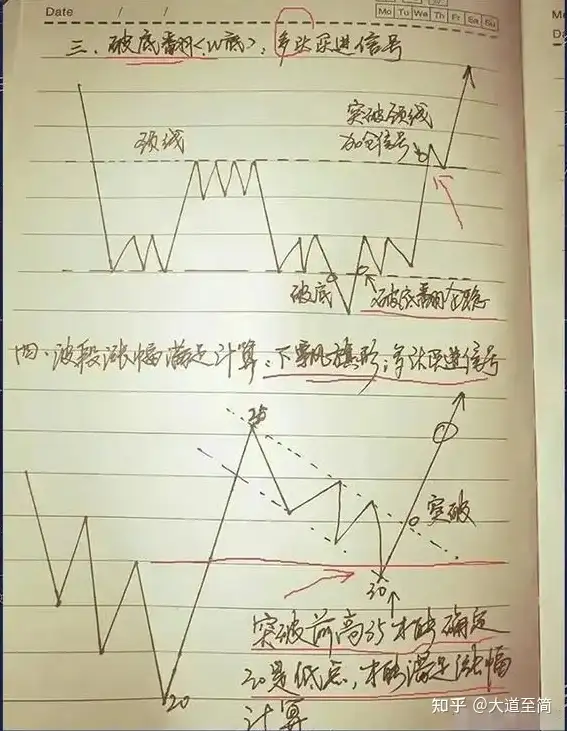 Date / /
Mo Tu We Th Fr Sa Su
三、破底翻<W底>:多头买进信号
突破颈线
加仓信号
颈线
破底
破底翻
四、波段涨幅满足计算:下飘旗形:多头买进信号
25
突破
30
突破前高35才能确定
30是低点,才能满足涨幅
20
计算
知乎 @大道至简